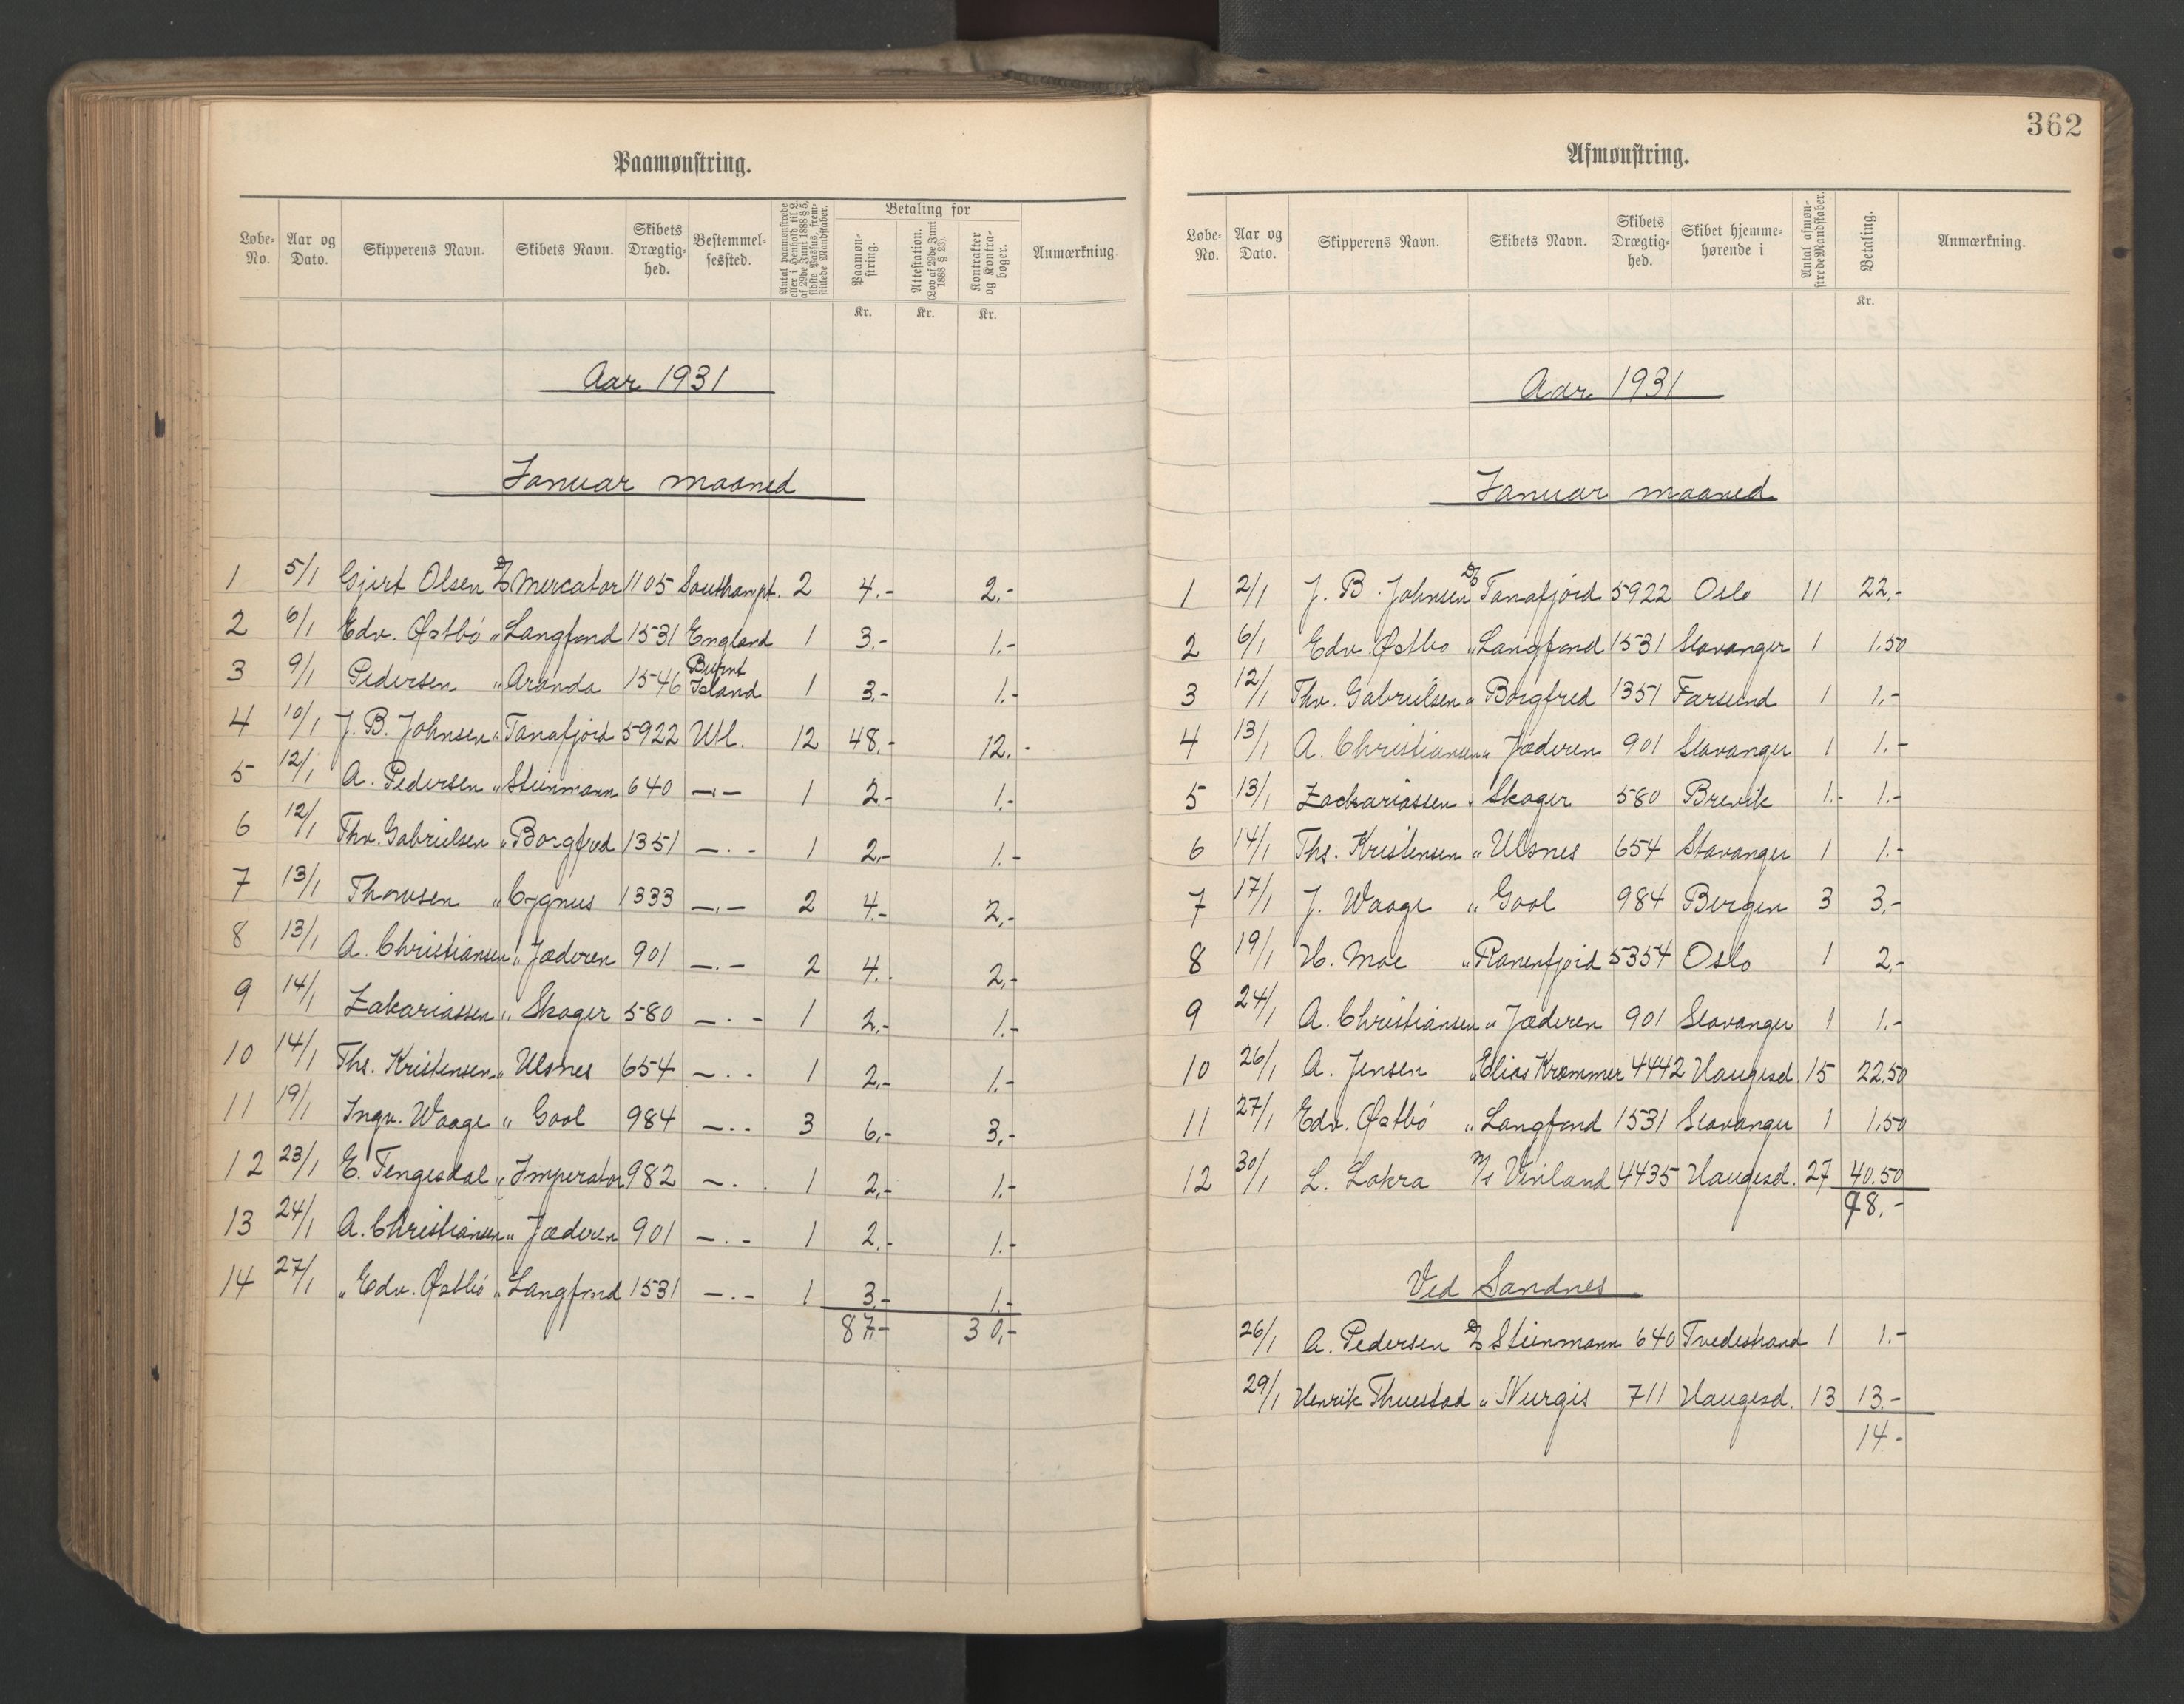 Paamønstring.
Løbe-No. Aar og Dato. Skipperens Navn. Skibets Navn. Skibets Drægtig-hed. Bestemmel-sessted. Antal paamønstrede eller i Henhold til L. af 29de Juni 1888 § 5, sidste Passus, frem-stillede Mandskaber. Betaling for Paamøn-string. Attestation. (Lov af 29de Juni 1888 § 23). Kontrakter og Kontra-bøger. Anmærkning
Kr. Kr. Kr.
Aar 1931
Januar maaned
1 5/1 Gjert Olsen D/S Mercator 1105 Southampt. 2 4.- 2.-
2 6/1 Edv. Østbö " Langfond 1531 England 1 3.- 1.-
3 9/1 Pedersen " Aranda 1546 Burnt Island 1 3.- 1.-
4 10/1 J. B. Johnsen " Tanafjord 5922 Utl. 12 48.- 12.-
5 12/1 A. Pedersen " Steinmann 640 -"- 1 2.- 1.-
6 12/1 Thv. Gabrielsen " Borgfred 1351 -"- 1 2.- 1.-
7 13/1 Thomsen " Cygnus 1333 -"- 2 4.- 2.-
8 13/1 A. Christiansen " Jæderen 901 -"- 2 4.- 2.-
9 14/1 Zakariassen " Skager 580 -"- 1 2.- 1.-
10 14/1 Ths. Kristensen " Ulsnes 654 -"- 1 2.- 1.-
11 19/1 Ingv. Waage " Gool 984 -"- 3 6.- 3.-
12 23/1 E. Tengesdal " Imperator 982 -"- 1 2.- 1.-
13 24/1 A. Christiansen " Jæderen 901 -"- 1 2.- 1.-
14 27/1 " Edv. Østbö " Langfond 1531 -"- 1 3.- 1.-
87.- 30.-
362
Afmønstring.
Løbe-No. Aar og Dato. Skipperens Navn. Skibets Navn. Skibets Drægtig-hed. Skibet hjemme-hørende i Antal afmøn-strede Mandskaber. Betaling. Anmærkning.
Kr.
Aar 1931
Januar maaned
1 2/1 J. B. Johnsen D/S Tanafjord 5922 Oslo 11 22.-
2 6/1 Edv. Østbo " Langfond 1531 Stavanger 1 1.50
3 12/1 Thv. Gabrielsen " Borgfred 1351 Farsund 1 1.-
4 13/1 A. Christiansen " Jæderen 901 Stavanger 1 1.-
5 13/1 Zachariassen " Skager 580 Brevik 1.- 1.-
6 14/1 Ths. Kristensen " Ulsnes 654 Stavanger 1 1.-
7 17/1 J. Waage " Gool 984 Bergen 3 3.-
8 19/1 H. Moe " Ranenfjord 5354 Oslo 1 2.-
9 24/1 A. Christiansen " Jæderen 901 Stavanger 1 1.-
10 26/1 A. Jensen " Elias Krommer 4442 Haugesd 15 22.50
11 27/1 Edv. Østbö " Langfond 1531 Stavanger 1 1.50
12 30/1 L. Lokra M/S Vinland 4435 Haugesd. 27 40.50
98.-
Ved Sandnes
26/1 A. Pedersen D/S Steinmann 640 Tvedestrand 1 1.-
29/1 Henrik Thuestad " Nurgis 711 Haugesd. 13 13.-
14.-